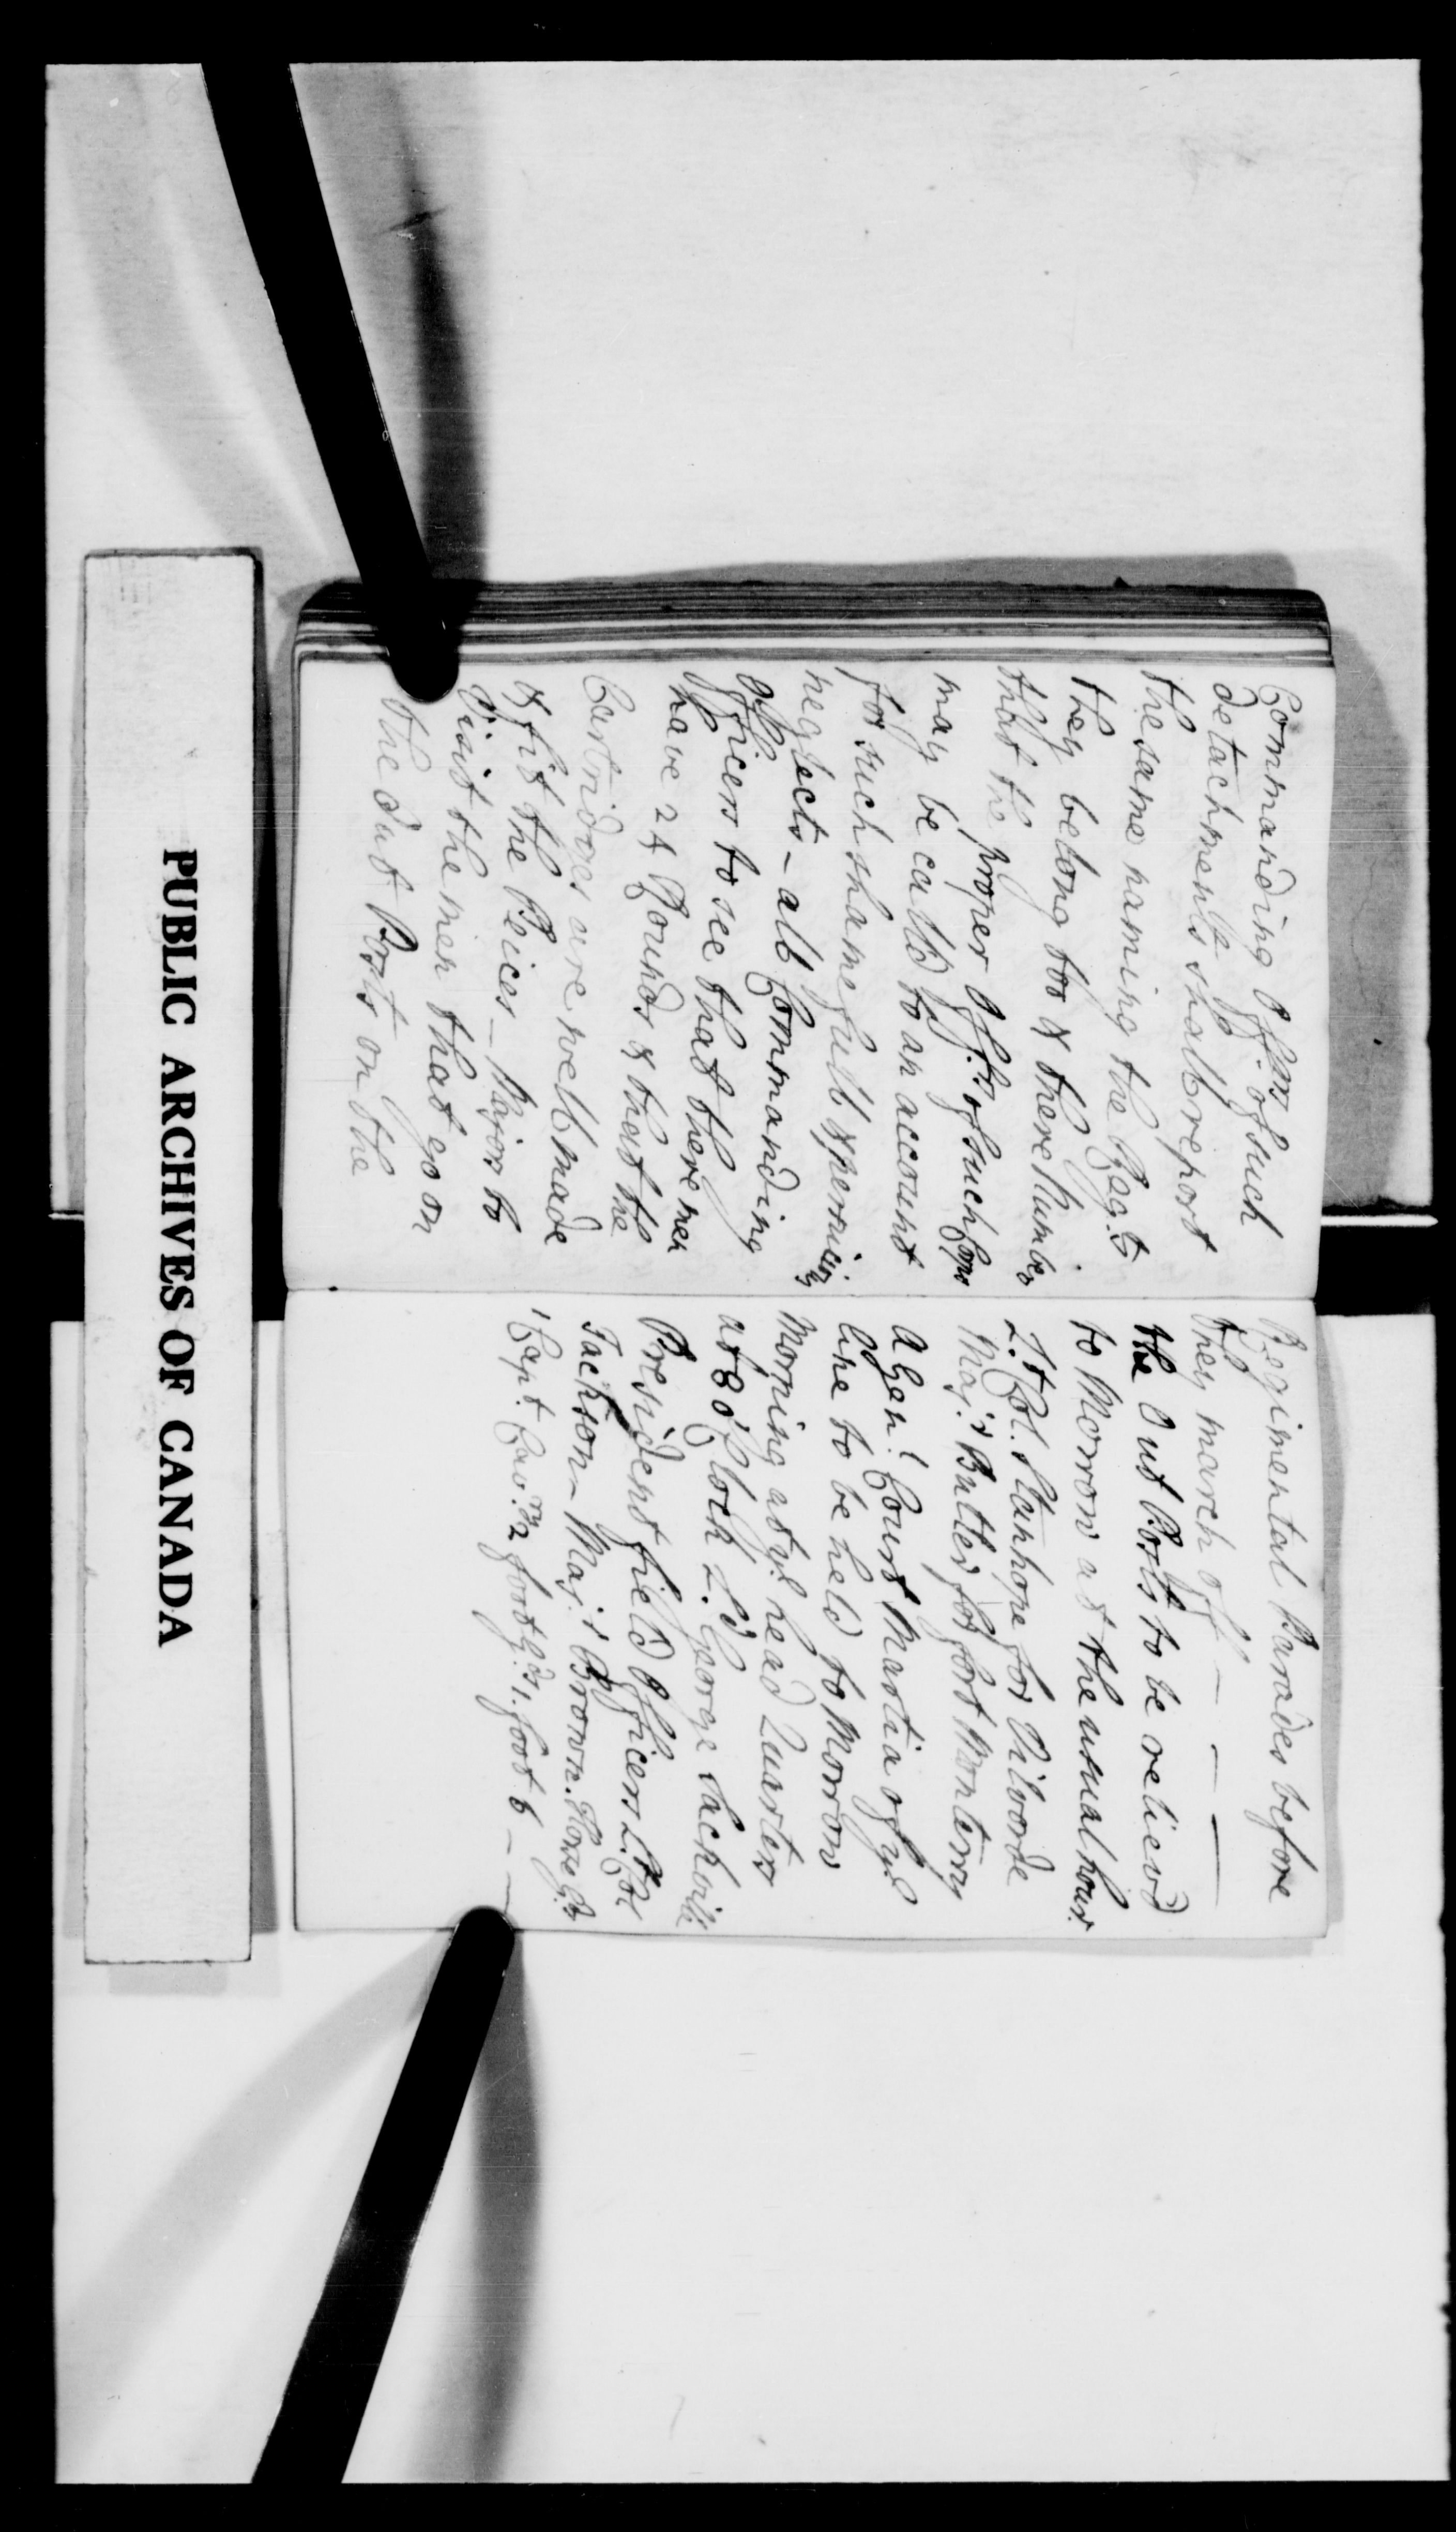 Commanding Offrs. of such
detachments shall report
the same naming the Reg.ts
they belong too & there Number
that the proper Offr. of such Corps
may be calld to an account
for such shamefull & pernicious
neglects - all Commanding
Officers to see that there men
have 24 Rounds & that the
Cartridges are well made
& fit the Peices - Majors to
Visit the men that go on
the Out Posts on the
Regimental Parades before
they march off - - - -
the Out Posts to be relievd
to Morrow at the usual hour.
L.t Col. Stanhope for Vilvorde
Maj.r Butler for fort Monterey
A Gen.l Court Martia of ye
line to be held to Morrow
Morning at ye head Quarters
at 8 o'Clock L.d George Sackville
President field Officers L.t Col
Jackson - Maj.r Brown. Horse G.ds
1 Capt. Cav.ry 2 foot G.ds 1. foot 6 - -
PUBLIC ARCHIVES OF CANADA